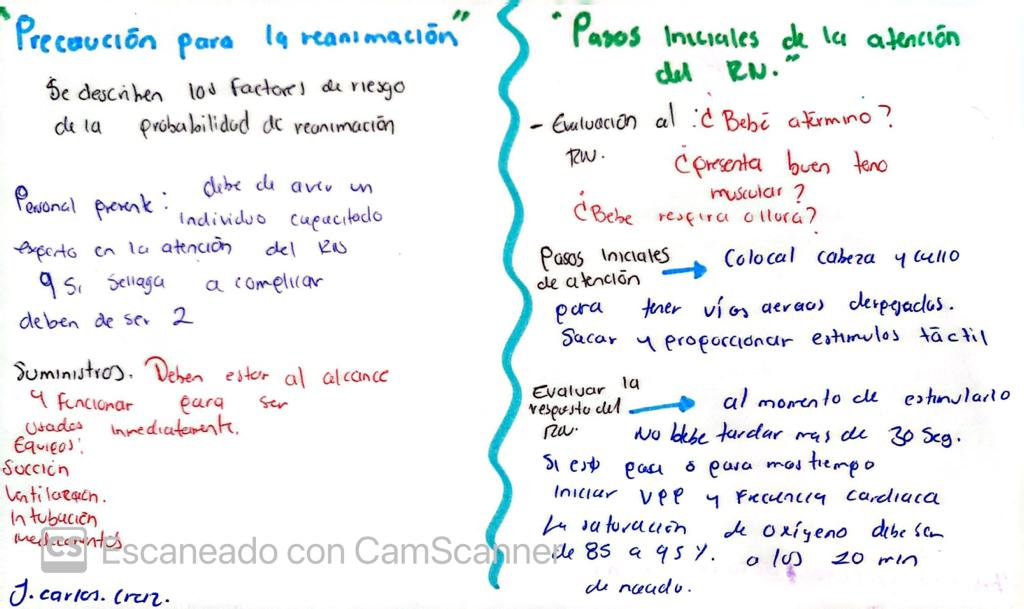 "Precaución para la reanimación"
Se describen los factores de riesgo
de la probabilidad de reanimación
Personal presente: debe de aver un
individuo capacitado
experto en la atención del RN
y si sellaga a complicar
deben de ser 2
Suministros. Deben estar al alcance
y funcionar para ser
usados inmediatamente.
Equipos:
Succión
Ventilación.
Intubación
Medicamentos
CS Escaneado con CamScanner
J. carlos. Cruz.
"Pasos Iniciales de la atención
del RN."
- Evaluación al : ¿Bebé atérmino?
RN. ¿presenta buen tono
muscular?
¿Bebe respira o llora?
Pasos Iniciales
de atención → Colocal cabeza y cuello
para tener vías aereas despejadas.
Sacar y proporcionar estimulos táctil
Evaluar la
respuesta del
RN. → al momento de estimularlo
No debe tardar mas de 30 Seg.
Si esto pasa o pasa mas tiempo
Iniciar VPP y Frecuencia cardiaca
La saturación de oxígeno debe ser
de 85 a 95 %. a los 20 min
de nacido.